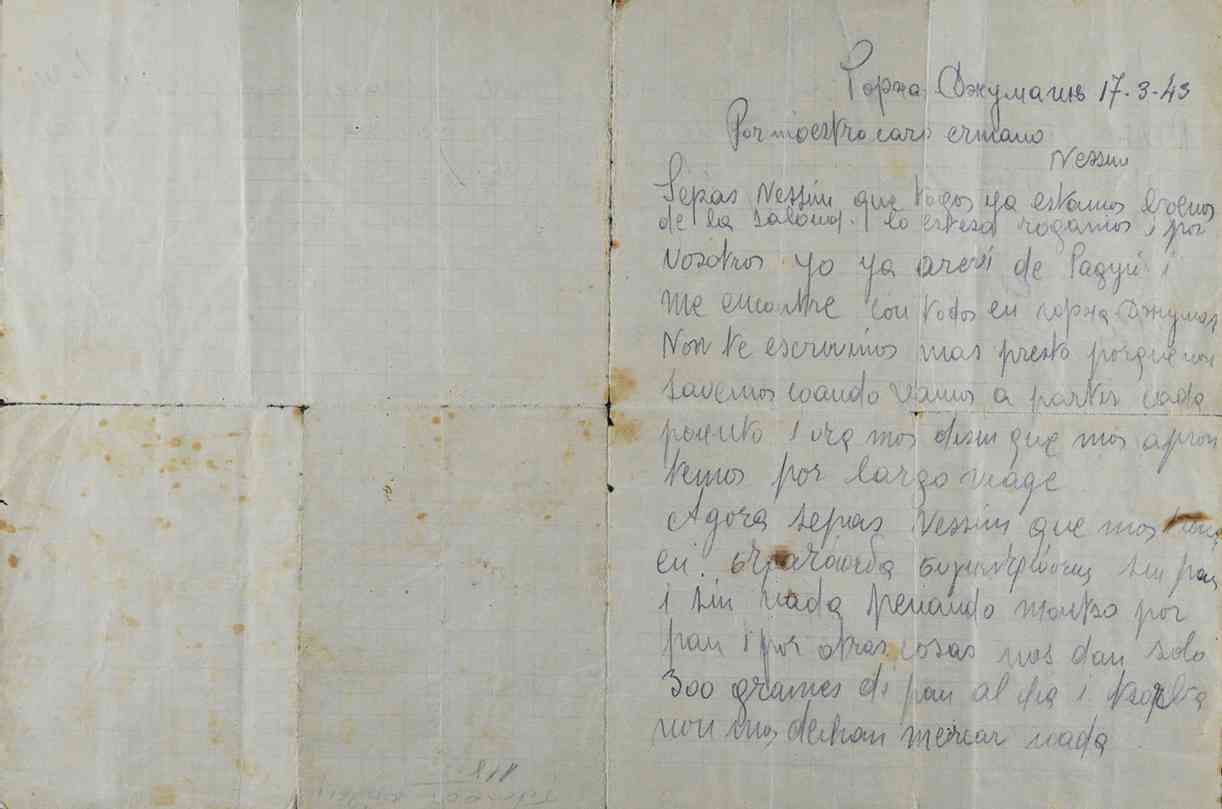 Горна Джумаиѣ 17-3-43
Por moestro caro ermano
Nessim
Sepas Nessim que todos ya estamos boenos
de la saloud. I lo esteso rogamos i por
Vosotros yo ya areví de i
me encontre con todos en горна Джумая
Non te escrivimos mas presto porque non
savemos coando vamos a partir cada
poento i ora mos disen que mos apron
temos por largo viage
Agora sepas Nessim que mos
en. στρατόπεδα συγκεντρώσεως sin pan
i sin nada penando montso por
pan i por otras cosas nos dan solo
300 grames di pan al dia i tsorba
non mos dechan mercar nada